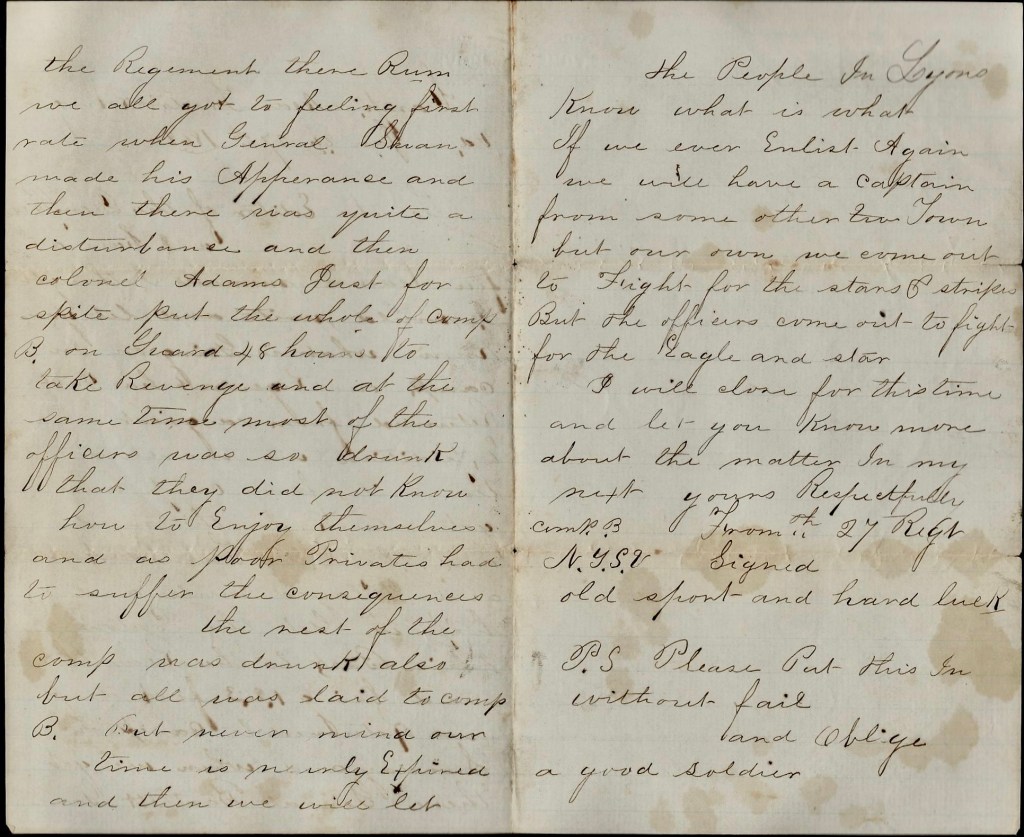 the Regement there Rum
we all got to feeling first
rate when Genral Swan
made his Apperance and
then there was quite a
disturbance and then
colonel Adams Just for
spite put the whole of comp
B. on Guard 48 hours to
take Revenge and at the
same time most of the
officers was so drunk
that they did not Know
how to Enjoy themselves
and as poor Privates had
to suffer the consequences
the rest of the
comp was drunk also
but all was laid to comp
B. But never mind our
time is nearly Expired
and then we will let
the People In Lyons
Know what is what
If we ever Enlist Again
we will have a captain
from some other Town
but our own we come out
to Fright for the stars & stripes
But the officers come out to fight
for the Eagle and star
I will close for this time
and let you Know more
about the matter In my
next yours Respectfully
comp. B From th 27 Regt
N.Y.S.V Signed
old sport and hard luck
P.S Please Put this In
without fail
and Oblige
a good soldier